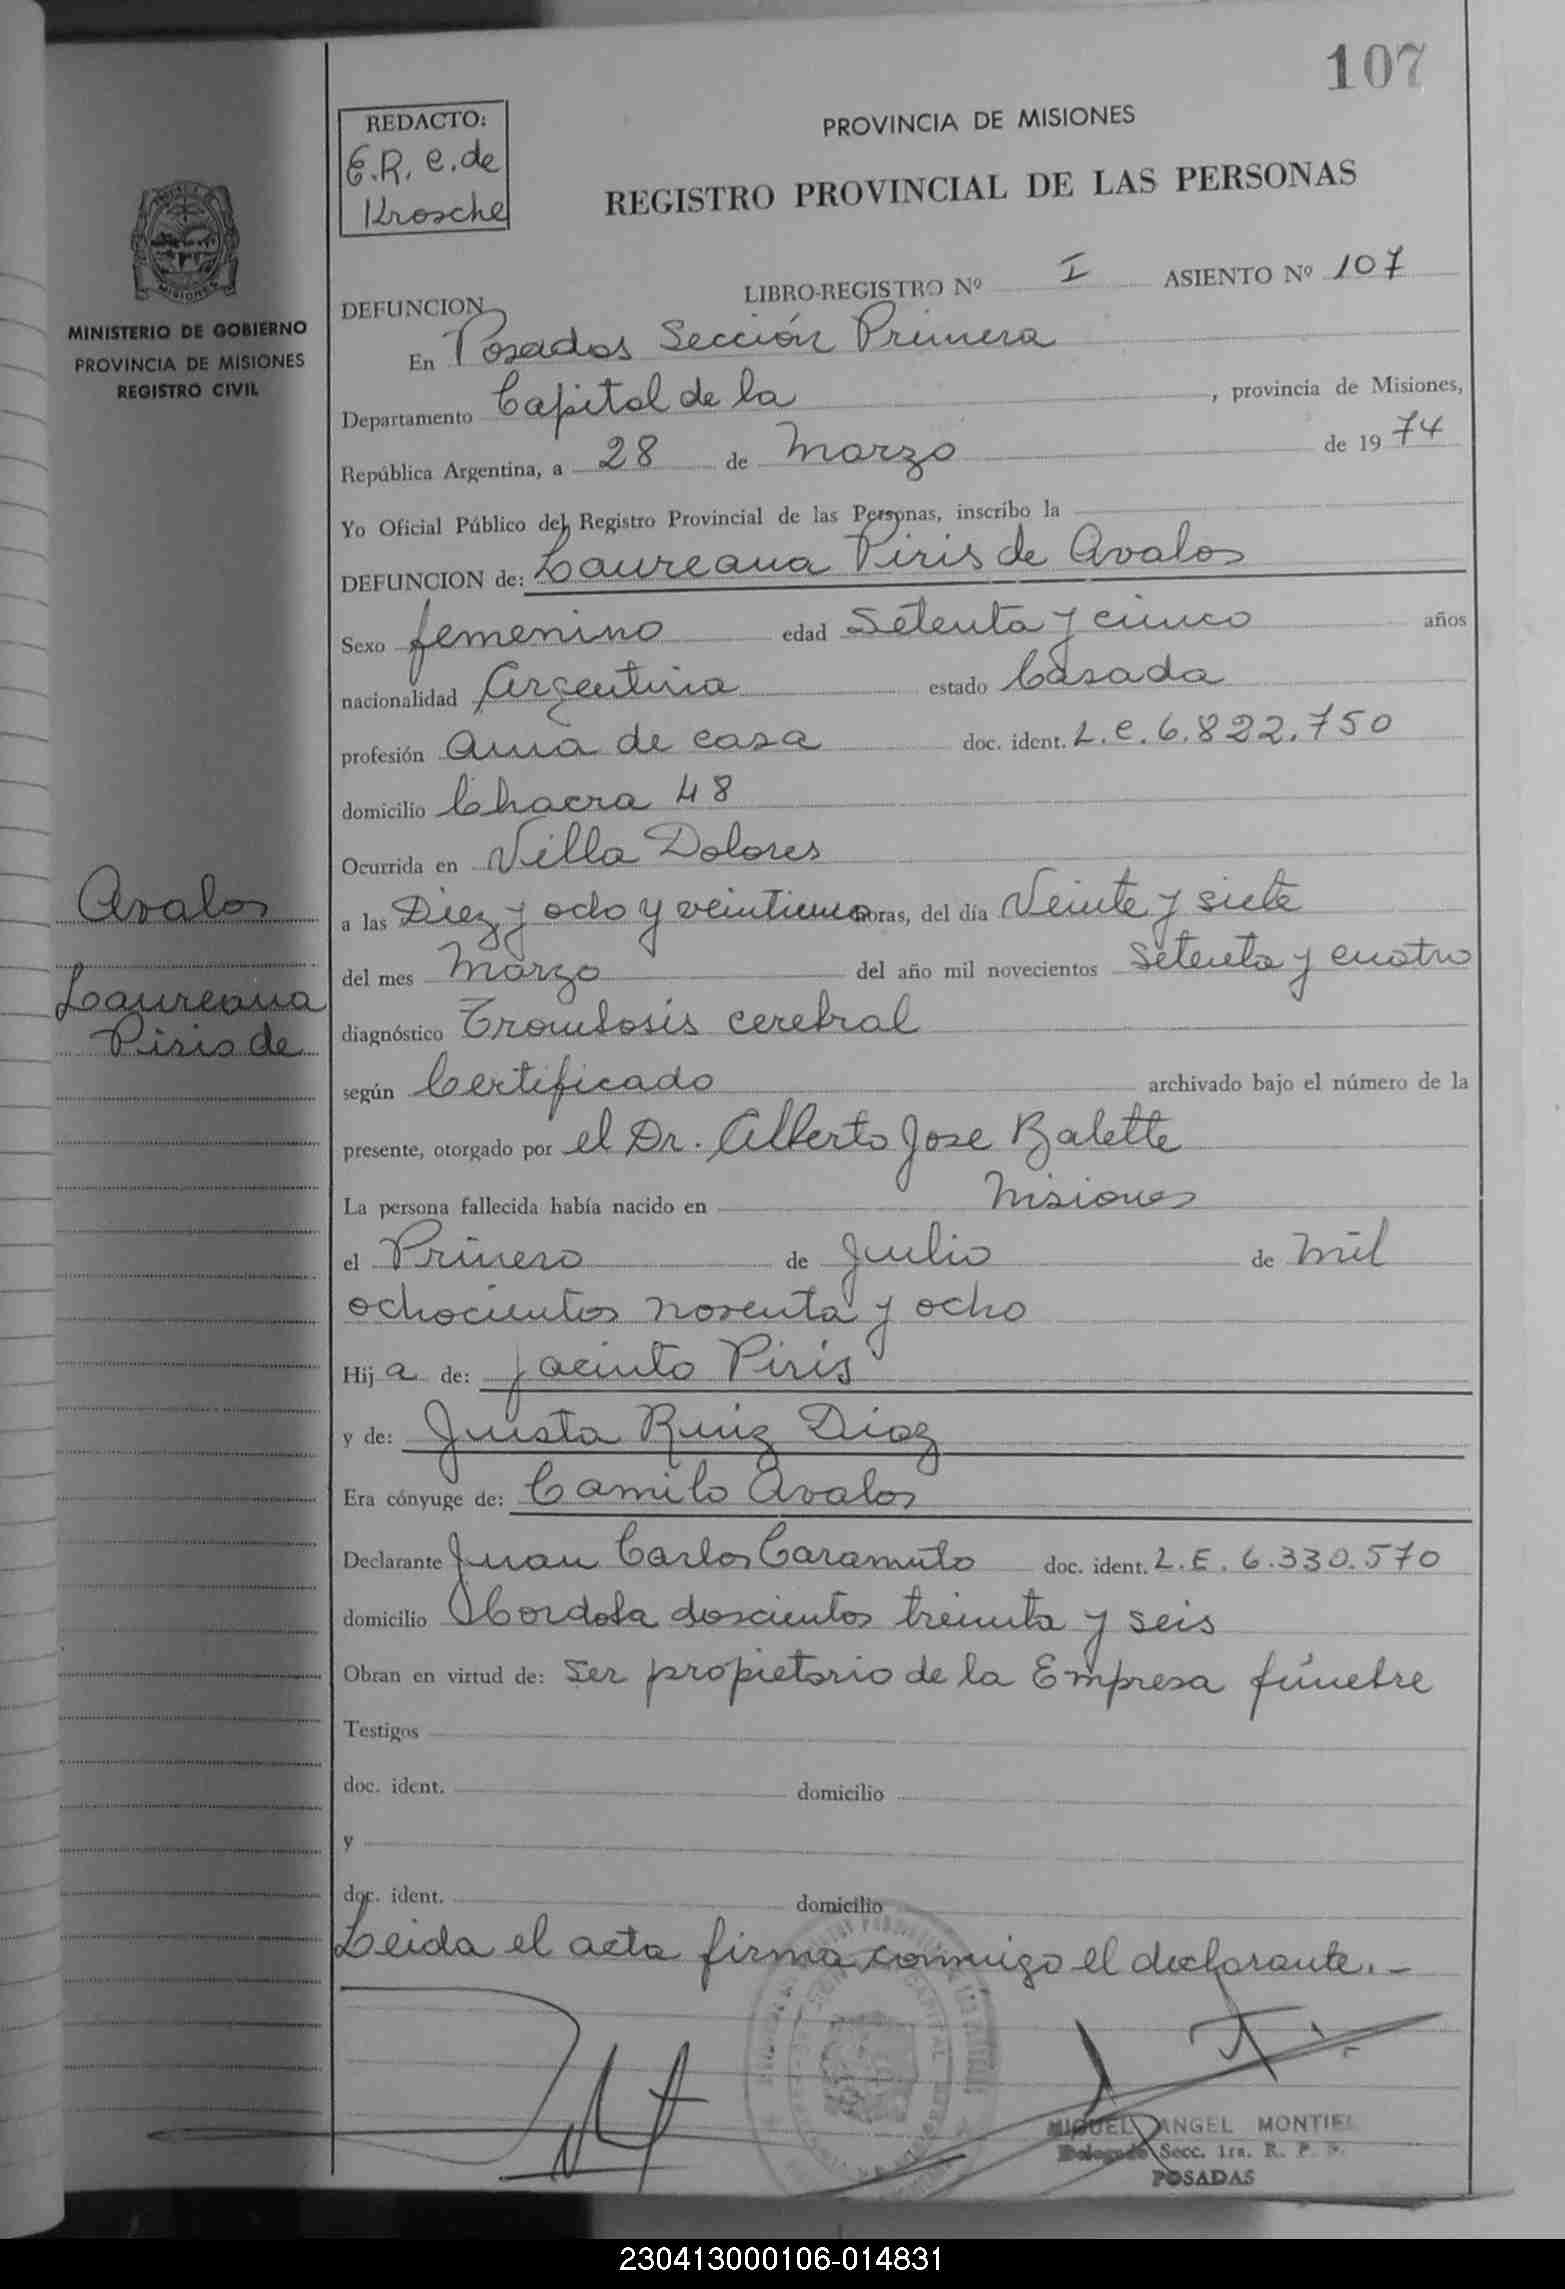 107
REDACTO:
E.R.C. de
Krosche
PROVINCIA DE MISIONES
REGISTRO PROVINCIAL DE LAS PERSONAS
MISIONES
MINISTERIO DE GOBIERNO
PROVINCIA DE MISIONES
REGISTRO CIVIL
LIBRO-REGISTRO Nº I ASIENTO Nº 107
DEFUNCION
En Posadas Sección Primera
Departamento Capital de la , provincia de Misiones,
República Argentina, a 28 de Marzo de 1974
Yo Oficial Público del Registro Provincial de las Personas, inscribo la
DEFUNCION de: Laureana Piris de Avalos
Sexo femenino edad Setenta y cinco años
nacionalidad Argentina estado Casada
profesión Ama de casa doc. ident. L.C. 6.822.750
domicilio Chacra 48
Ocurrida en Villa Dolores
Avalos
Laureana
Piris de
a las Diez y ocho y horas, del día Veinte y siete
del mes Marzo del año mil novecientos Setenta y cuatro
diagnóstico Trombosis cerebral
según Certificado archivado bajo el número de la
presente, otorgado por el Dr. Alberto Jose Balette
La persona fallecida había nacido en Misiones
el Primero de Julio de Mil
ochocientos noventa y ocho
Hija de: Jacinto Piris
y de: Justa Ruiz Diaz
Era cónyuge de: Camilo Avalos
Declarante Juan Carlos Caramuto doc. ident. L.E. 6.330.570
domicilio Cordoba doscientos treinta y seis
Obran en virtud de: Ser propietario de la Empresa fúnebre
Testigos
doc. ident. domicilio
y
doc. ident. domicilio
Leida el acta firma conmigo el declarante.-
MIGUEL ANGEL MONTIEL
Delegado Secc. 1ra. R. P. P.
POSADAS
230413000106-014831